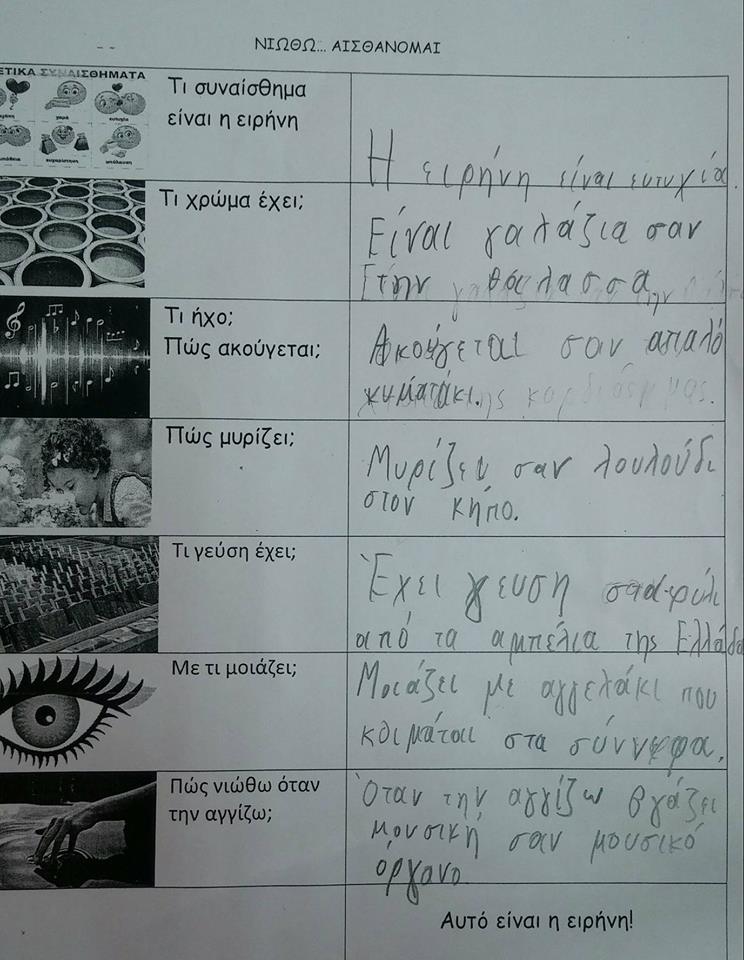 ΝΙΩΘΩ... ΑΙΣΘΑΝΟΜΑΙ
ΕΤΙΚΑ ΣΥΝΑΙΣΘΗΜΑΤΑ
Τι συναίσθημα
είναι η ειρήνη
Η ειρήνη είναι ευτυχία.
Τι χρώμα έχει;
Είναι γαλάζια σαν
την θάλασσα
Τι ήχο;
Πώς ακούγεται;
Ακούγεται σαν απαλό
κυματάκι.
Πώς μυρίζει;
Μυρίζει σαν λουλούδι
στον κήπο.
Τι γεύση έχει;
Έχει γευση σταφύλι
από τα αμπέλια της Ελλάδα
Με τι μοιάζει;
Μοιάζει με αγγελάκι που
κθιμάται στα σύννεφα.
Πώς νιώθω όταν
την αγγίζω;
Όταν την αγγίζω βγάζει
μουσική σαν μουσικό
όργανο
Αυτό είναι η ειρήνη!